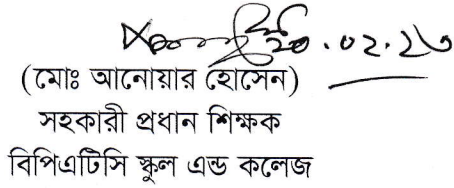 ২০.০২.২৩
(মোঃ আনোয়ার হোসেন)
সহকারী প্রধান শিক্ষক
বিপিএটিসি স্কুল এন্ড কলেজ